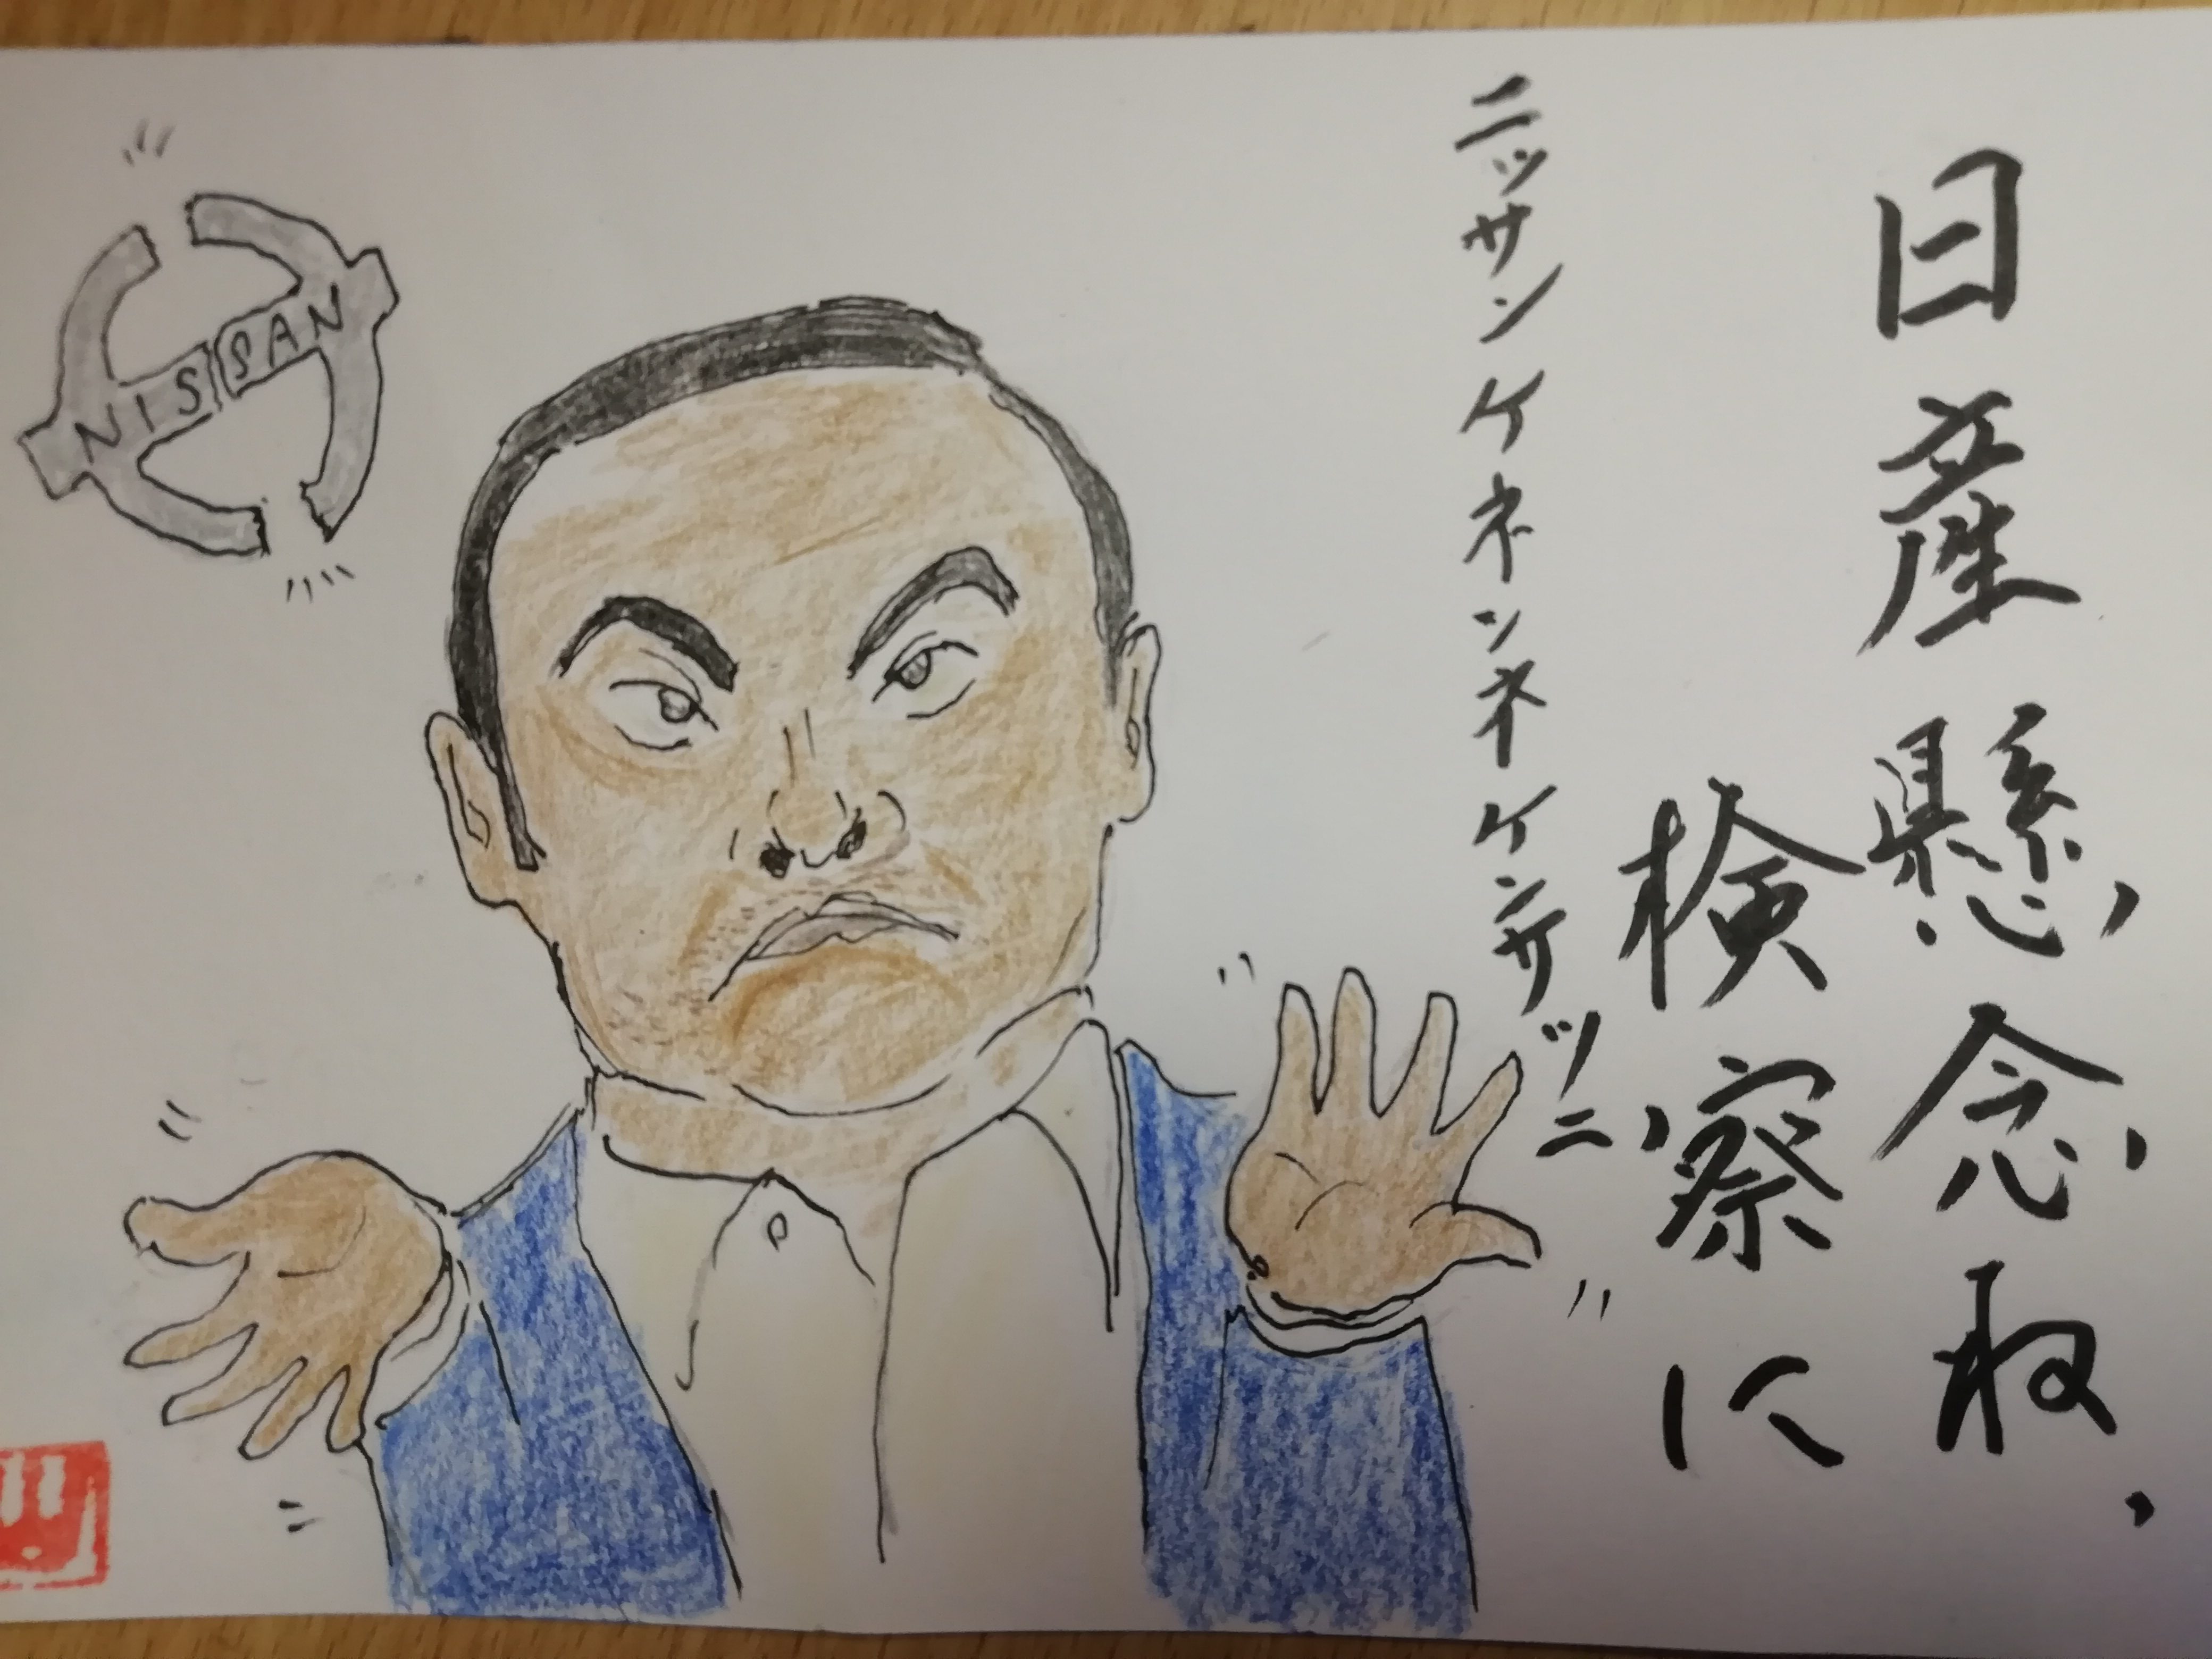 日産懸念ね、
検察に
ニッサンケネンネケンサツニ
NISSAN